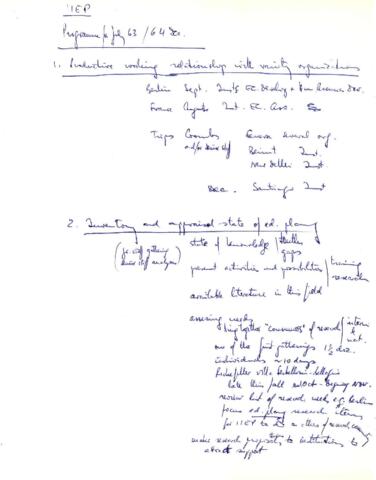 IIEP
Programme for July 63/64 Dec.
1. Productive working relationship with variety organisations
Berlin Sept. Inst. Ec. Develop + Hum. Resources Dev.
France Augustin Inst. EC.
Trips Coombs Geneva several org.
and/or senior staff Beirut Inst
New Delhi Inst.
Dec. Santiago Inst
2. Inventory and appraisal state of ed. planning
(jr. staff gathering
senior staff analyses)
state of knowledge / studies
gaps
present activities and possibilities / training
research
available literature in this field
assessing needs
bring together "consumers" of research / intern
& nat.
one of the first gatherings 1½ doz.
individuals ~10 days
Rockefeller villa Serbelloni-Bellagio
late this fall Oct- beginng Nov.
review list of research needs e.g. Berlin
focus ed. planng research items
for IIEP to do
make research proposals to institutions to
attract support